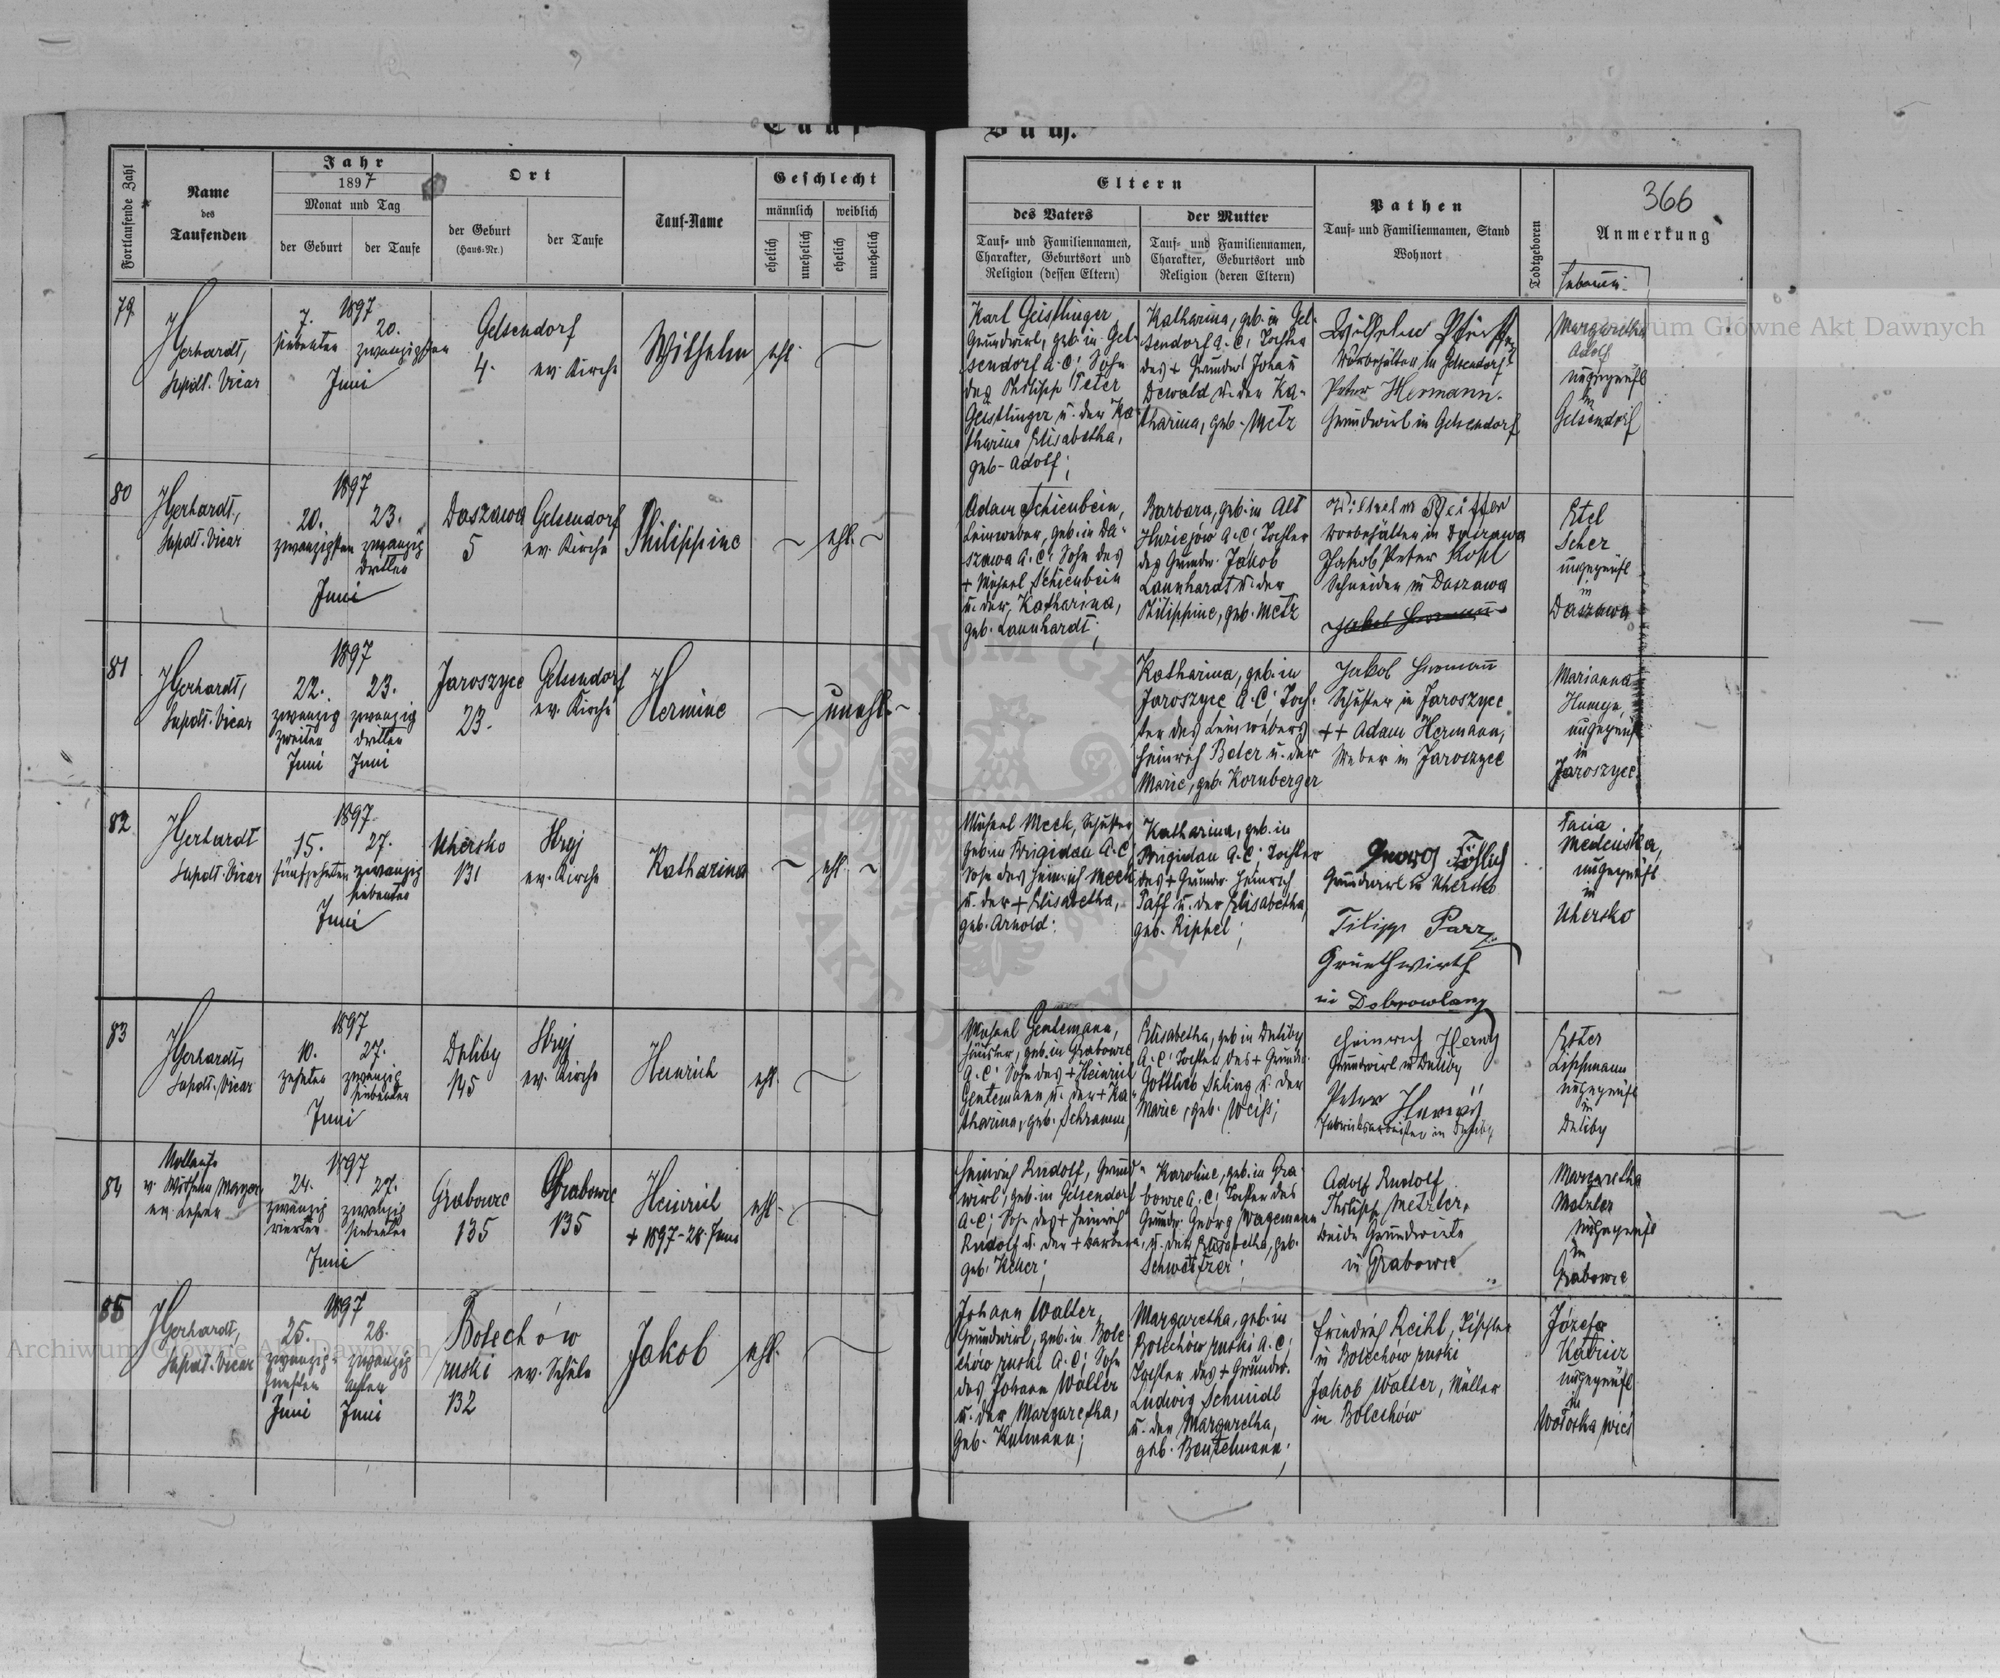 Tauf-Buch.
Fortlaufende Zahl
Name
des
Taufenden
Jahr
1897
Monat und Tag
der Geburt
der Taufe
Ort
der Geburt
(Haus-Nr.)
der Taufe
Tauf-Name
Geschlecht
männlich
weiblich
ehelich
unehelich
ehelich
unehelich
Eltern
des Vaters
Tauf- und Familiennamen,
Charakter, Geburtsort und
Religion (dessen Eltern)
der Mutter
Tauf- und Familiennamen,
Charakter, Geburtsort und
Religion (deren Eltern)
Pathen
Tauf- und Familiennamen, Stand
Wohnort
Todtgeboren
366
Anmerkung
79
Gerhardt,
Supdt. Vicar
1897
7.
siebenten
20.
zwanzigsten
Juni
Gelsendorf
4.
ev. Kirche
Wilhelm
ehl.
Karl Geistlinger
Grundwirt, geb. in Gel-
sendorf A.C; Sohn
des Philipp Peter
Geistlinger u. der Ka-
tharina Elisabetha,
geb. Adolf;
Katharina, geb. in Gel-
sendorf A.C; Tochter
des + Grundw. Johann
Dewald u. der Ka-
tharina, geb. Metz
Wilhelm
in Gelsendorf
Peter Hermann
Grundwirt in Gelsendorf
Margaretha
Adolf
ungeprüft
in
Gelsendorf
80
Gerhardt,
Supdt. Vicar
1897
20.
zwanzigsten
23.
zwanzig
dritten
Juni
Daszawa
5
Gelsendorf
ev. Kirche
Philippine
ehl.
Adam Schienbein,
Leinweber, geb. in Da-
szawa A.C; Sohn des
+ Michael Schienbein
u. der Katharina,
geb. Lannhardt;
Barbara, geb. in Alt
A.C; Tochter
des Grundw. Jakob
Lannhardt u. der
Philippine, geb. Metz
in Daszawa
Jakob Peter
Schneider in Daszawa
Etel
Scher
ungeprüft
in
Daszawa
81
Gerhardt,
Supdt. Vicar
1897
22.
zwanzig
zweiten
Juni
23.
zwanzig
dritten
Juni
Jaroszyce
23.
Gelsendorf
ev. Kirche
Hermine
unehl.
Katharina, geb. in
Jaroszyce A.C; Toch-
ter des Leinwebers
Heinrich Beler u. der
Marie, geb. Kornberger
Jakob Hermann
Schuster in Jaroszyce
++ Adam Hermann,
Weber in Jaroszyce
Marianna
ungeprüft
in
Jaroszyce
82
Gerhardt
Supdt. Vicar
1897
15.
fünfzehnten
27.
zwanzig
siebenten
Juni
Uhersko
131
Stryj
ev. Kirche
Katharina
ehl.
Michael Meck, Schuster
geb. in Brigidau A.C
Sohn des Heinrich Meck
u. der + Elisabetha,
geb. Arnold;
Katharina, geb. in
Brigidau A.C; Tochter
des + Grundw. Heinrich
Paff u. der Elisabetha,
geb. Rippel;
Georg
Grundwirt in Uhersko
Filipp Parz
Grunthwirth
in Dobrowlany
Tacia
ungeprüft
in
Uhersko
83
Gerhardt,
Supdt. Vicar
1897
10.
zehnten
27.
zwanzig
siebenten
Juni
Duliby
145
Stryj
ev. Kirche
Heinrich
ehl.
Michael Gentemann,
Häusler, geb. in Grabowce
A.C; Sohn des + Heinrich
Gentemann u. der + Ka-
tharina, geb. Schramm;
Elisabetha, geb. in Duliby
A.C; Tochter des + Grundw.
Gottlieb u. der
Marie, geb. Weiss;
Heinrich
Grundwirt in Duliby
Peter
Fabriksarbeiter in Duliby
Ester
Lippmann
ungeprüft
in
Duliby
84
v. Wilhelm Mayer
ev. Lehrer
1897
24.
zwanzig
vierten
27.
zwanzig
siebenten
Juni
Grabowce
135
Grabowce
135
Heinrich
+ 1897-28. Juni
ehl.
Heinrich Rudolf, Grund-
wirt, geb. in Gelsendorf
A.C; Sohn des + Heinrich
Rudolf u. der + Barbara,
geb. Keller;
Karoline, geb. in Gra-
bowce A.C; Tochter des
Grundw. Georg Wagemann
u. der Elisabetha, geb.
Schweitzer;
Adolf Rudolf
Philipp Metzler,
beide Grundwirte
in Grabowce
Margaretha
Metzler
ungeprüft
in
Grabowce
85
Gerhardt,
Supdt. Vicar
1897
25.
zwanzig
fünften
Juni
28.
zwanzig
achten
Juni
Bolechów
ruski
132
ev. Schule
Jakob
ehl.
Johann Walter
Grundwirt, geb. in Bole-
chów ruski A.C; Sohn
des Johann Walter
u. der Margaretha,
geb. Kulmann;
Margaretha, geb. in
Bolechów ruski A.C;
Tochter des + Grundw.
Ludwig Schmidt
u. der Margaretha,
geb. Beutelmann;
Friedrich Reihl, Tischler
in Bolechów ruski
Jakob Walter, Müller
in Bolechów
Józefa
ungeprüft
in
Wołoska wieś
Archiwum Główne Akt Dawnych
Archiwum Główne Akt Dawnych
ARCHIWUM GŁÓWNE AKT DAWNYCH